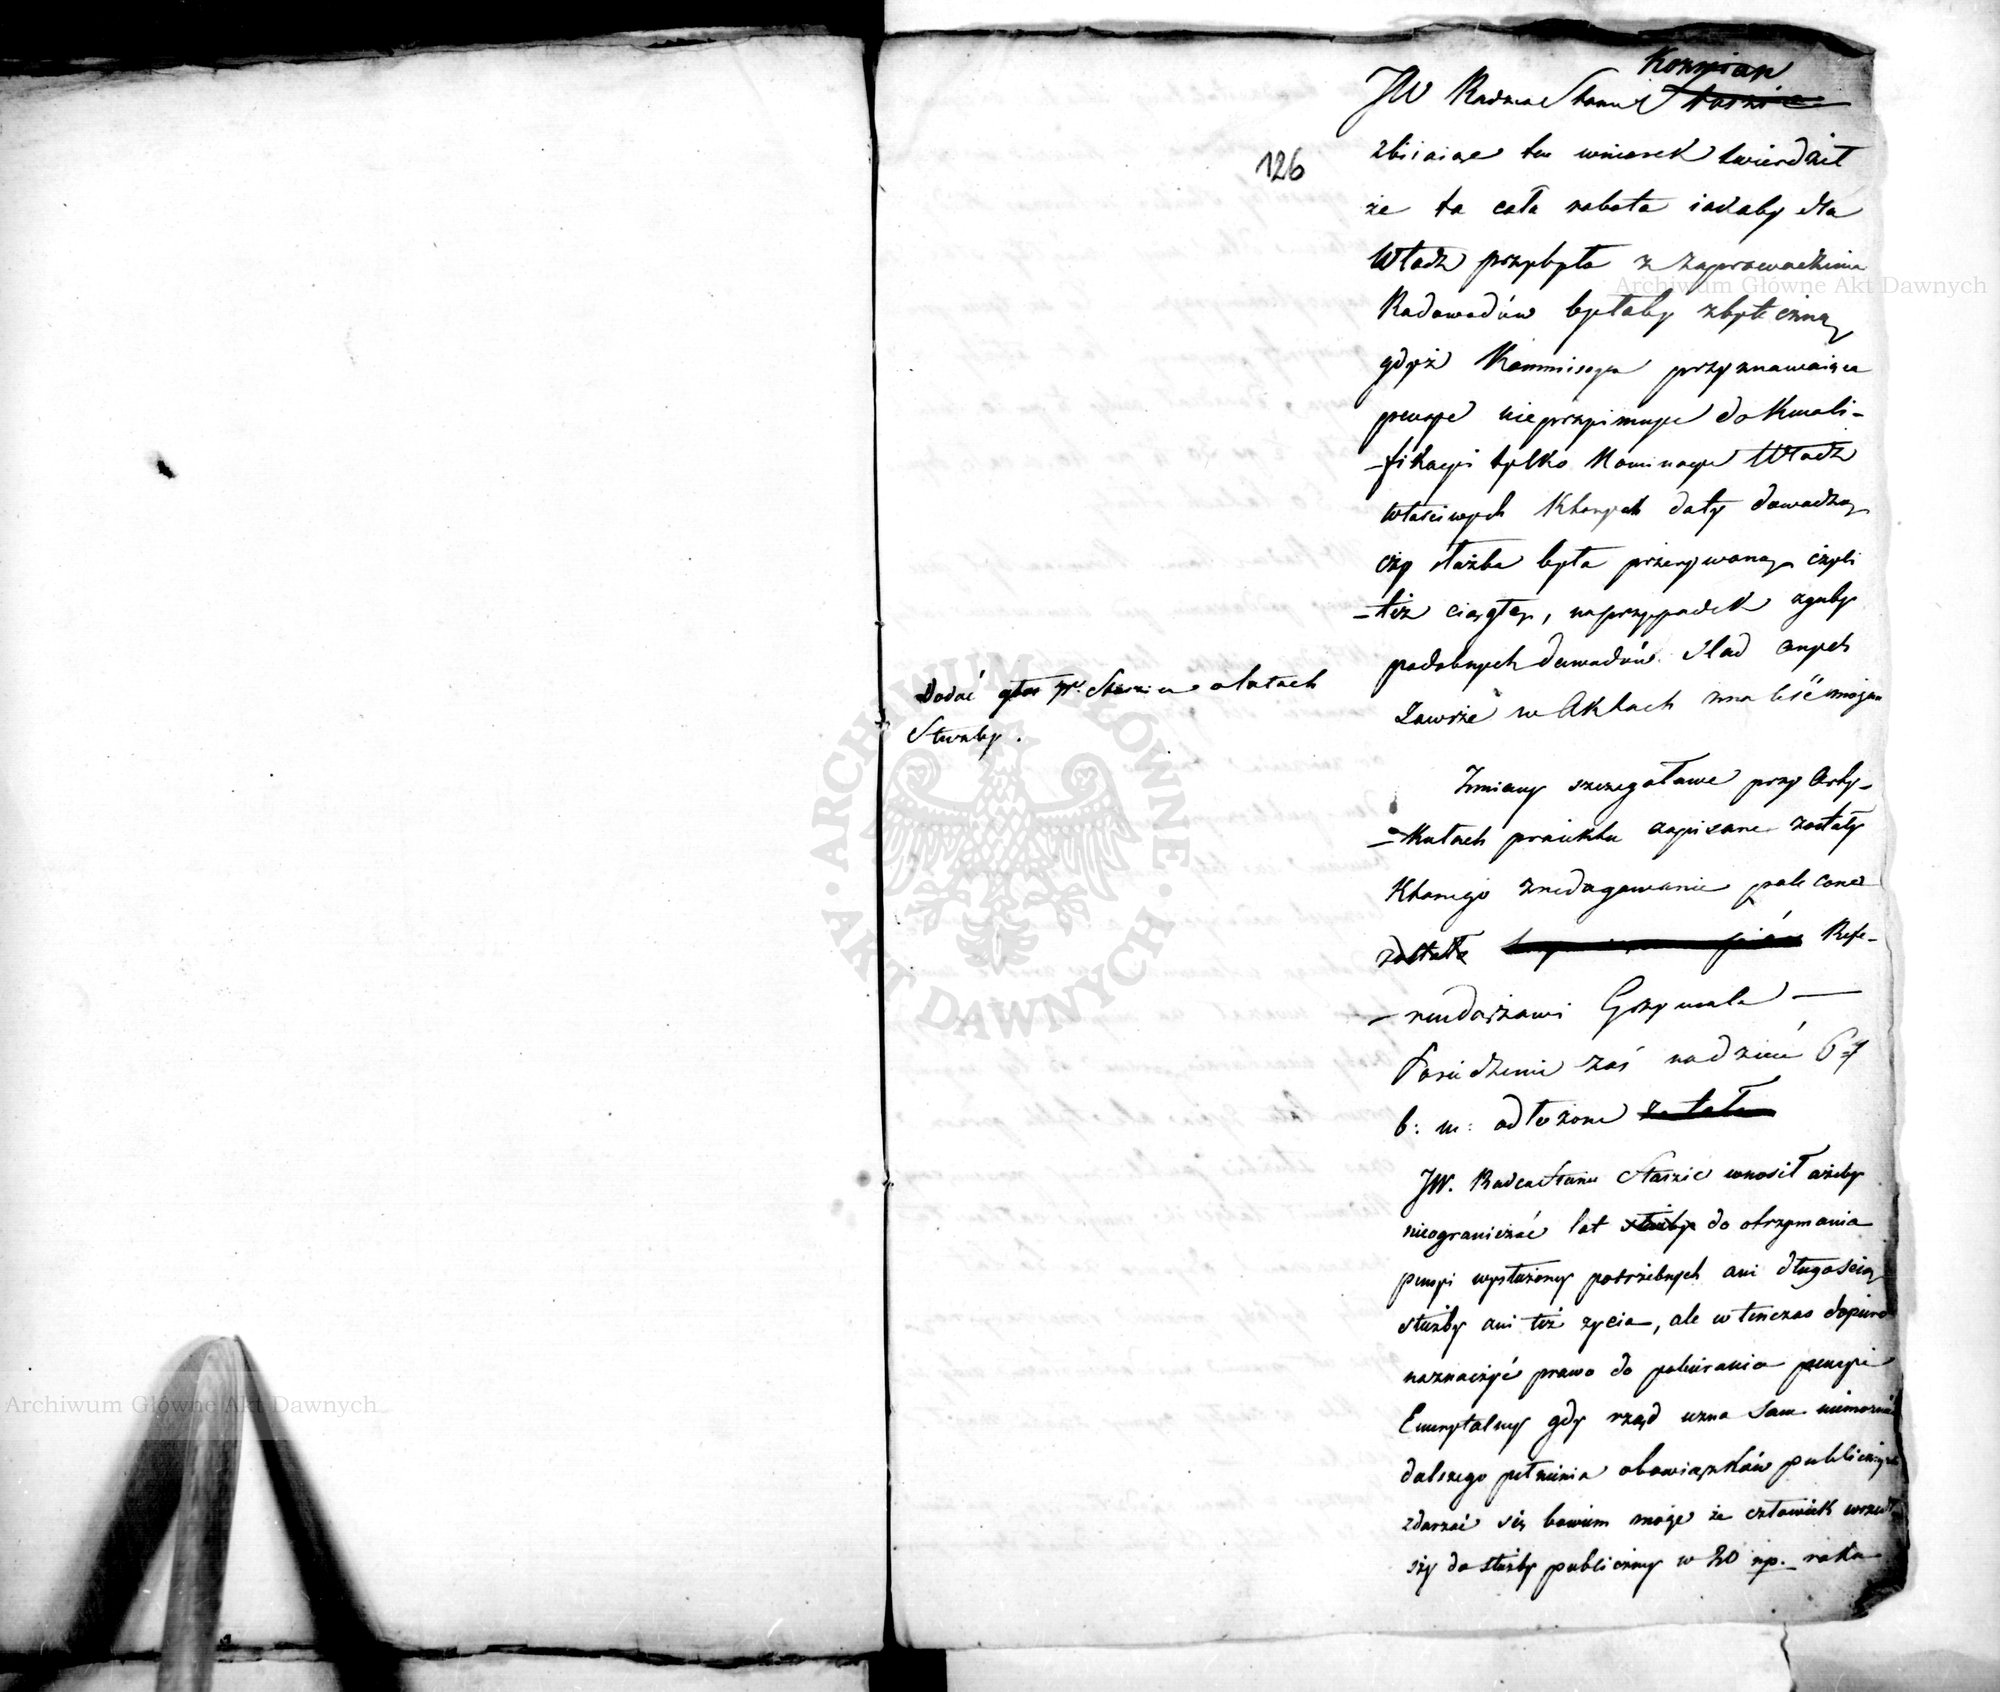 126
Koźmian
JW Radca Stanu Staszic
zbiiaiąc ten wniosek twierdził
że ta cała robota iakaby dla
Władz przybyła z zaprowadzenia
Rodowodów byłaby zbyteczną
gdyż Kommissya przyznawaiąca
pensye nieprzyimuye do kwali-
-fikacyi tylko Nominacye Władz
właściwych których daty dowodzą
czy służba była przerywaną czyli
-też ciągłą, na przypadek zguby
podobnych dowodów ślad onych
zawsze w Aktach ma bydź
Dodać głos JW. Staszica o latach
Służby.
Zmiany szczegołowe przy Arty-
-kułach proiektu zapisane zostały
którego zredagowanie polecone
zostało Refe-
-rendarzowi Grzymale —
Posiedzenie zaś na dzień 6
b: m: odłożone zostało
JW. Radca Stanu Staszic wnosił ażeby
nieograniczać lat służby do otrzymania
pensyi wysłużoney potrzebnych ani długością
służby ani też życia, ale w tenczas dopiero
naznaczyć prawo do pobierania pensyi
Emerytalney gdy rząd uzna sam niemożność
dalszego pełnienia obowiązków publicznych
zdarzać się bowiem może że człowiek wszedł-
szy do służby publiczney w 20 np. roku
Archiwum Główne Akt Dawnych
Archiwum Główne Akt Dawnych
ARCHIWUM GŁÓWNE
AKT DAWNYCH